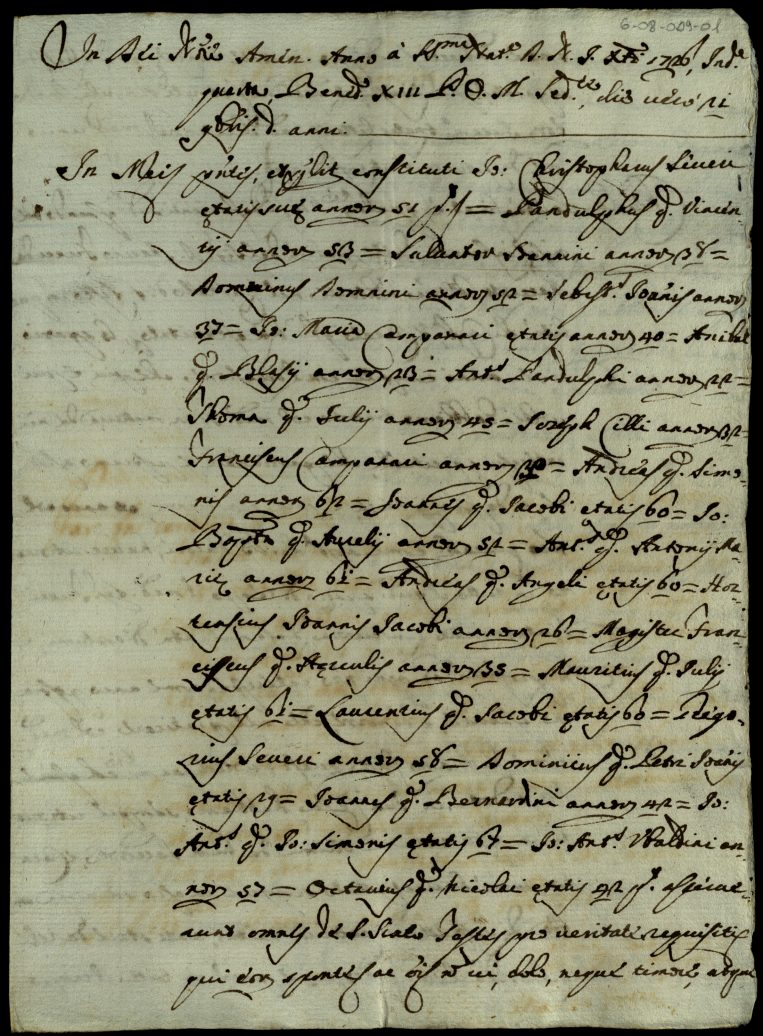 6-08-009-01
In Dei Nñe Amen. Anno à SS.me Nat.e D. N. J. Xti 1726, Ind.e
quarta, Bened. XIII P. O. M. Sed.te, die vero 21
9bris d. anni.
In Meis pñtis, constituti Io: Christophorus Seueri
etatis suę annor 51 = Pandulphus q. Vincen-
tij annor 53 = Saluator Ioannini annor 38 =
Dominicus Domnini annor 52 = Sebast. Ioañis annor
37 = Io: Maria Campanari etatis annor 40 = Anibal
q. Blasij annor 23 = Ant.s Pandulphi annor 22 =
Thoma q. Iulij annor 45 = Joseph Cilli annor 32 =
Franciscus Campanari annor 30 = Andreas q. Simo-
nis annor 62 = Joannes q. Jacobi etatis 60 = Io:
Bapta q. Aurelij annor 52 = Ant.s q. Antonij Ma-
rię annor 61 = Andreas q. Angeli ętatis 60 = Hor-
tensius Ioannis Jacobi annor 26 = Magister Fran-
ciscus q. Herculis annor 35 = Mauritius q. Iulij
ętatis 61 = Laurentius q. Jacobi ętatis 60 = Grego-
rius Seueri annor 58 = Dominicus q. Petri Ioañis
ętatis 29 = Joannes q. Bernardini annor 42 = Io:
Ant.s q. Io: Simonis ętatis 67 = Io: Ant.s Vbaldini an-
nor 57 = Octauius q. Nicolai ętatis 42
omnes de S. Testes pro veritate requisiti
qui sponte ac dolo, neque timore, atque